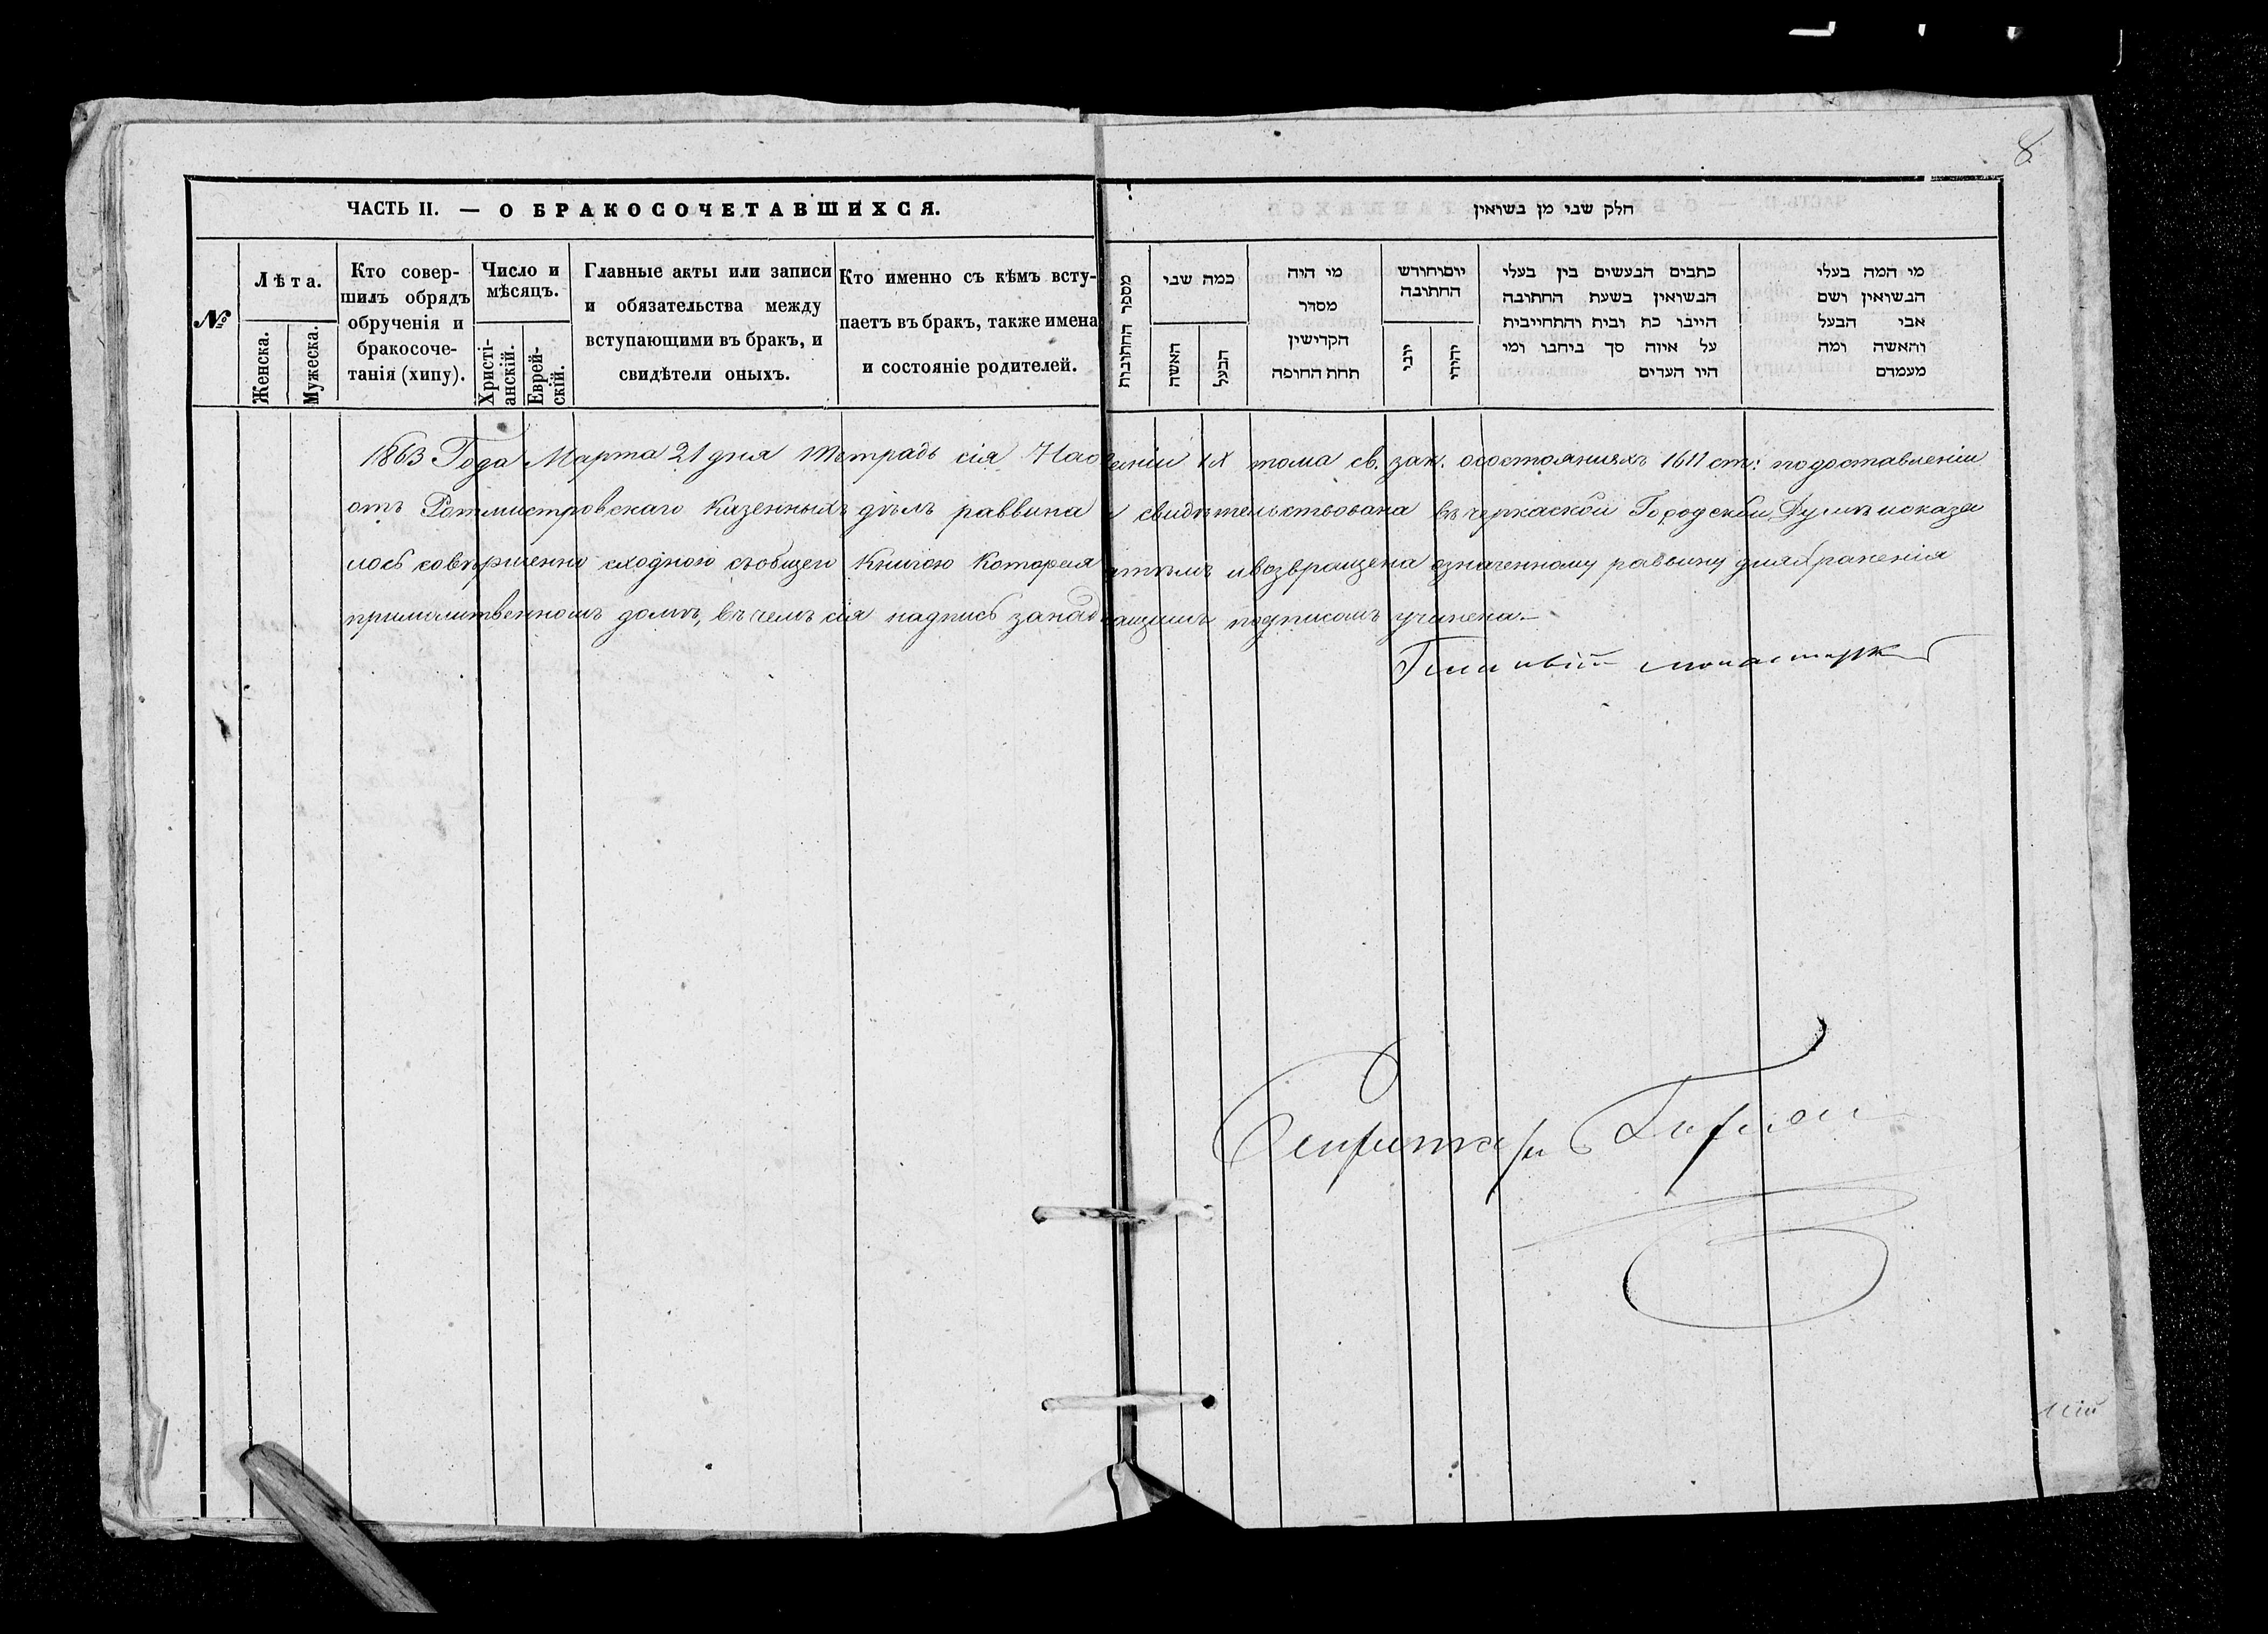 8
ЧАСТЬ II. — О БРАКОСОЧЕТАВШИХСЯ.
№
Лѣта.
Женска.
Мужеска.
Кто совер-
шилъ обрядъ
обрученія и
бракосоче-
танія (хипу).
Число и
мѣсяцъ.
Христі-
анскій.
Еврей-
скій.
Главные акты или записи
и обязательства между
вступающими въ бракъ, и
свидѣтели оныхъ.
Кто именно съ кѣмъ всту-
паетъ въ бракъ, также имена
и состояніе родителей.
חלק שני מן נשואין
מספר החתונות
כמה שני
האשה
הבעל
מי היה
מסדר
הקדישין
תחת החופה
יוםוחודש
החתונה
יוני
יהודי
כתבים הנעשים בין בעלי
הנשואין בשעת החתונה
היינו כת ובית והתחייבית
על איזה סך ביחבו ומי
היו העדים
מי המה בעלי
הנשואין ושם
אבי הבעל
והאשה ומה
מעמדם
1863 Года Марта 21 дня Тетрадь сія На основаніи IX тома св. зак. осостояніяхъ 1611 ст: подоставленіи
отъ Ротмистровскаго Казенныхъ дѣлъ раввина свидѣтельствована въ черкаской Городской Думѣ иоказа
лось совершенно сходною съобщею Книгою Которая возвращена означенному раввину дляхраненія
примолитвенномъ домѣ, въ чемъ сія надпись занад подписомъ учинена.
Секретарь